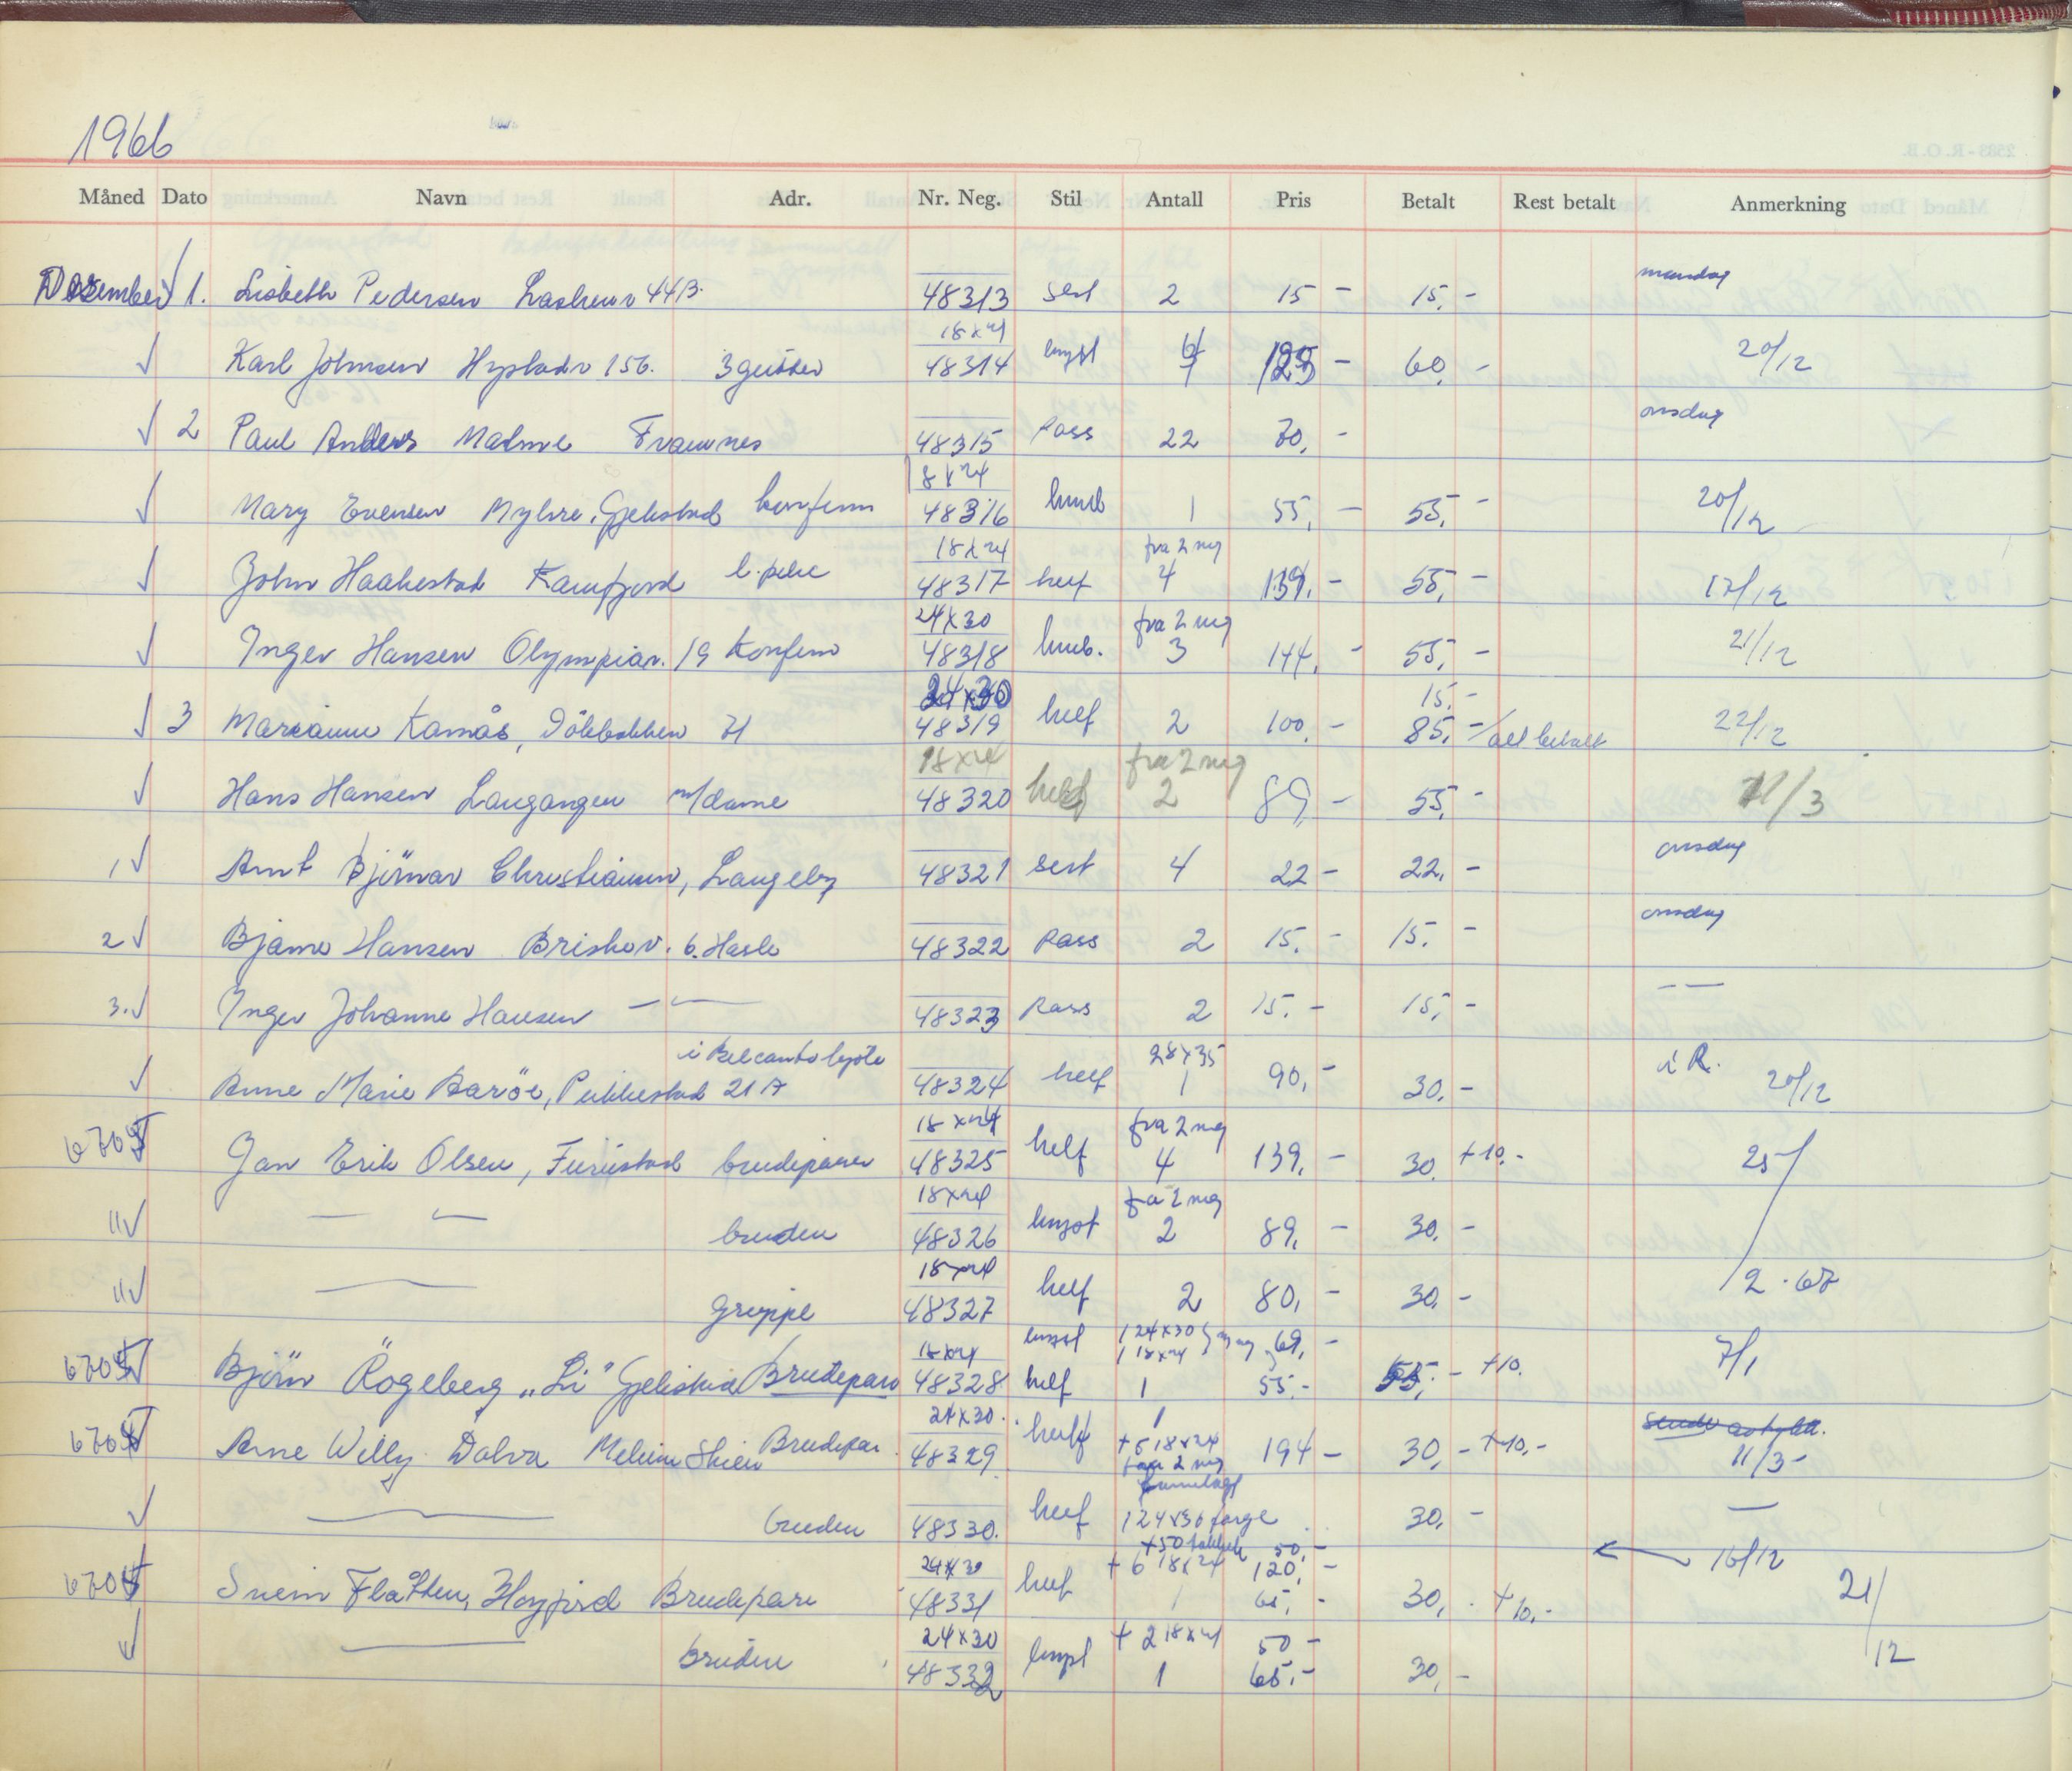 1966
Måned Dato Navn Adr. Nr. Neg. Stil Antall Pris Betalt Rest betalt Anmerkning
Desember 1. Lisbeth Pedersen 44B. 48313 2 15 - 15,- mandag
18x24
Karl Johnsen 156. 3 gutter 48314 125 - 60,- 20/12
2 Paul Anders Malme Framnes 48315 Pass 22 30,- onsdag
18x24
Mary Evensen Myhre, Gjekstad konfirm 48316 1 55,- 55,- 20/12
18x24 fra 2 neg
John Haakestad Kamfjord 48317 helf 4 139,- 55,- 17/12
24x30 fra 2 neg
Inger Hansen Olympiav. 19 Konfirm 48318 3 144,- 55,- 21/12
24x30 15,-
3 Marianne Kamås, 48319 helf 2 100,- 85,- alt betalt 22/12
18x24 fra 2 neg
Hans Hansen Langangen m/dame 48320 helf 2 89,- 55,- 11/3
1 Arnt Björnar Christiansen, Langeby 48321 4 22 - 22,- onsdag
2 Bjarne Hansen Briskev. 6. Hasle 48322 Pass 2 15,- 15,- onsdag
3. Inger Johanne Hansen — — 48323 Pass 2 15,- 15,- — —
i Belcanto kjole 28x35 i R.
Anne Marie Baröe, Pukkestad 21 A 48324 helf 1 90,- 30,- 20/12
18x24 fra 2 neg
6705 Jan Erik Olsen, Furustad brudeparet 48325 helf 4 139,- 30,- +10,- 25/2-67
18x24 fra 2 neg
" — — bruden 48326 2 89,- 30,-
18x24
" — gruppe 48327 helf 2 80,- 30,-
18x24 1 24x30 1 18x24 69,-
6705 Björn Rögeberg "Li" Gjekstad Brudepar 48328 helf 1 55,- 55,- +10,- 7/1
24x30. 1
6705 Arne Willy Dalva Melum Skien Brudepar. 48329 helf + 6 18x24 fra 2 neg 194 - 30,- +10,- 11/3-
— bruden 48330. helf 1 24x30 farge 30,- —
+50 takkek 50,-
24x30 + 6 18x24 120,- 16/12
6705 Svein Flåtten, Høyjord Brudepar 48331 helf 1 65,- 30,- +10,- 21/12
24x30 + 2 18x24 50 -
— bruden 48332 1 65,- 30,-